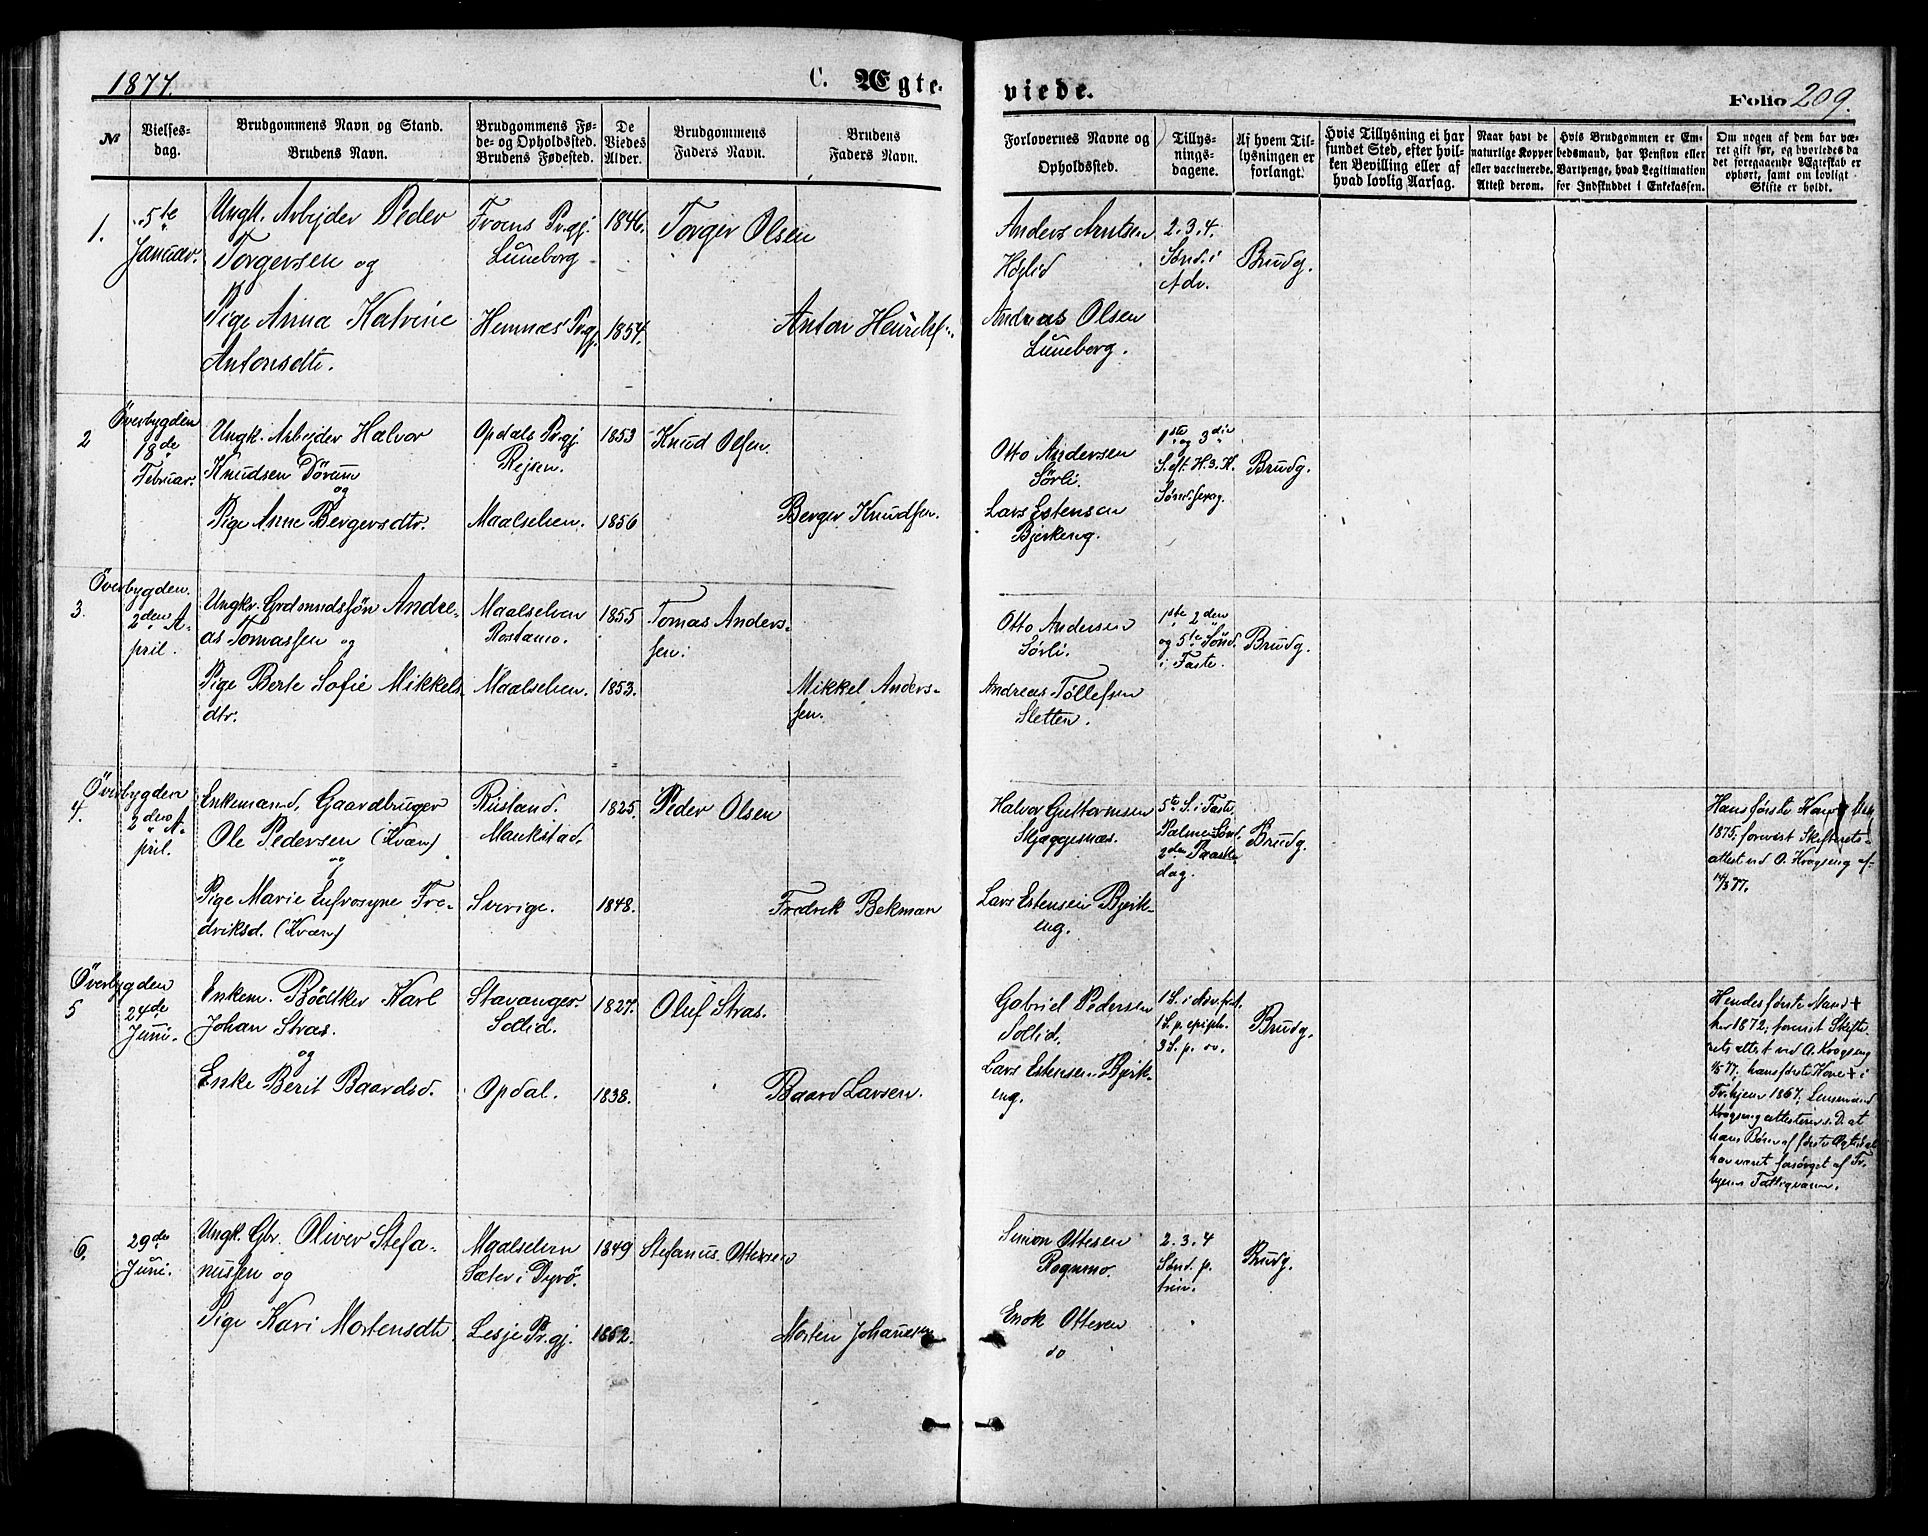 1877.
C. Ægte-
viede.
Folio 209.
№
Vielses-
dag.
Brudgommens Navn og Stand.
Brudens Navn.
Brudgommens Fø-
de- og Opholdssted.
Brudens Fødested.
De
Viedes
Alder.
Brudgommens
Faders Navn.
Brudens
Faders Navn.
Forlovernes Navne og
Opholdssted.
Tillys-
nings-
dagene.
Af hvem Til-
lysningen er
forlangt.
Hvis Tillysning ei har
fundet Sted, efter hvil-
ken Bevilling eller af
hvad lovlig Aarsag.
Naar havt de
naturlige Kopper
eller vaccinerede.
Attest derom.
Hvis Brudgommen er Em-
bedsmand, har Pension eller
Vartpenge, hvad Legitimation
for Indskuddet i Enkekassen.
Om nogen af dem har væ-
ret gift før, og hvorledes da
det foregaaende Ægteskab er
ophørt, samt om lovligt
Skifte er holdt.
1.
5te
Januar.
Ungk. Arbejder Peder
Torgersen og
Pige Anna Katrine
Antonsdtr.
Froens Prgj.
Luneborg
Hemnæs Prgj.
1846.
1854.
Torger Olsen
Anton Henriks
Anders Arntsen
Høglid
Andreas Olsen
Luneborg.
2.3.4.
Sønd. i
Adv.
Brudg.
2
Överbygden
18de
Februar.
Ungk. Arbejder Halvor
Knudsen Dörum
og
Pige Anne Bergersdtr.
Opdals Prgj.
Rejsen.
Maalselven.
1853
1856
Knud Olsen.
Berger Knudsen.
Otto Andersen
Sørli.
Lars Estensen
Bjerkeng.
1ste og 3die
S. eft. H. 3. K.
Brudg.
3.
Överbygden.
2den A-
pril.
Ungkr. Grdmundssøn Andre-
as Tomassen og
Pige Berte Sofie Mikkels
dtr.
Maalselven
Rostamo.
Maalselven.
1855
1853.
Tomas Anders-
sen.
Mikkel Anders-
sen.
Otto Andersen
Sørli.
Andreas Tollefsen
Sletten.
1ste 2den
og 5te Sönd.
i Faste.
Brudg.
4.
Överbygden
2den A-
pril.
Enkemand, Gaardbruger
Ole Pedersen (Kvæn)
og
Pige Marie Eufrosyne Fre-
driksd. (Kvæn)
Rusland.
Maukstad.
Sverige.
1825.
1848.
Peder Olsen
Fredrik Bekman
Halvor Guttormsen
Skjæggesnæs.
Lars Estensen Bjerk-
eng.
5te S. i Faste
Palme Sønd.
2den Paaske
dag.
Brudg.
Hans første Kone
1875, forevist Skifterets-
attest ved O. Krogseng af
14/3 77.
5
Överbygden
24de
Juni.
Enkem. Bödtker Karl
Johan Stras.
og
Enke Berit Baardsd.
Stavanger.
Sollid.
Opdal.
1827.
1838.
Oluf Stras.
Baard Larsen.
Gabriel Pedersen
Sollid.
Lars Estensen Bjerk-
eng.
1 S. i
1 S. p. epiph.
3 S. p.
Brudg.
Hendes første Mand +
her 1872, forevist Skifte-
rets attest ved O. Krogseng
77. hans første Kone + i
Trhjem 1867. Lensmand
Krogseng attesterer s. D. at
hans Børn af første Ægteskab
har været forsørget af Tr.
hjems Fattigvæsen.
6.
29de
Juni.
Ungk. Gbr. Oliver Stefa-
nussen og
Pige Kari Mortensdtr.
Maalselven
Sæter i Dyrö.
Lesje Prgj.
1849
1852.
Stefanus Ottersen
Morten Johannesen
Simon Ottesen
Rognmo.
Enok Ottesen
do
2.3.4
Sønd. p.
trin.
Brudg.